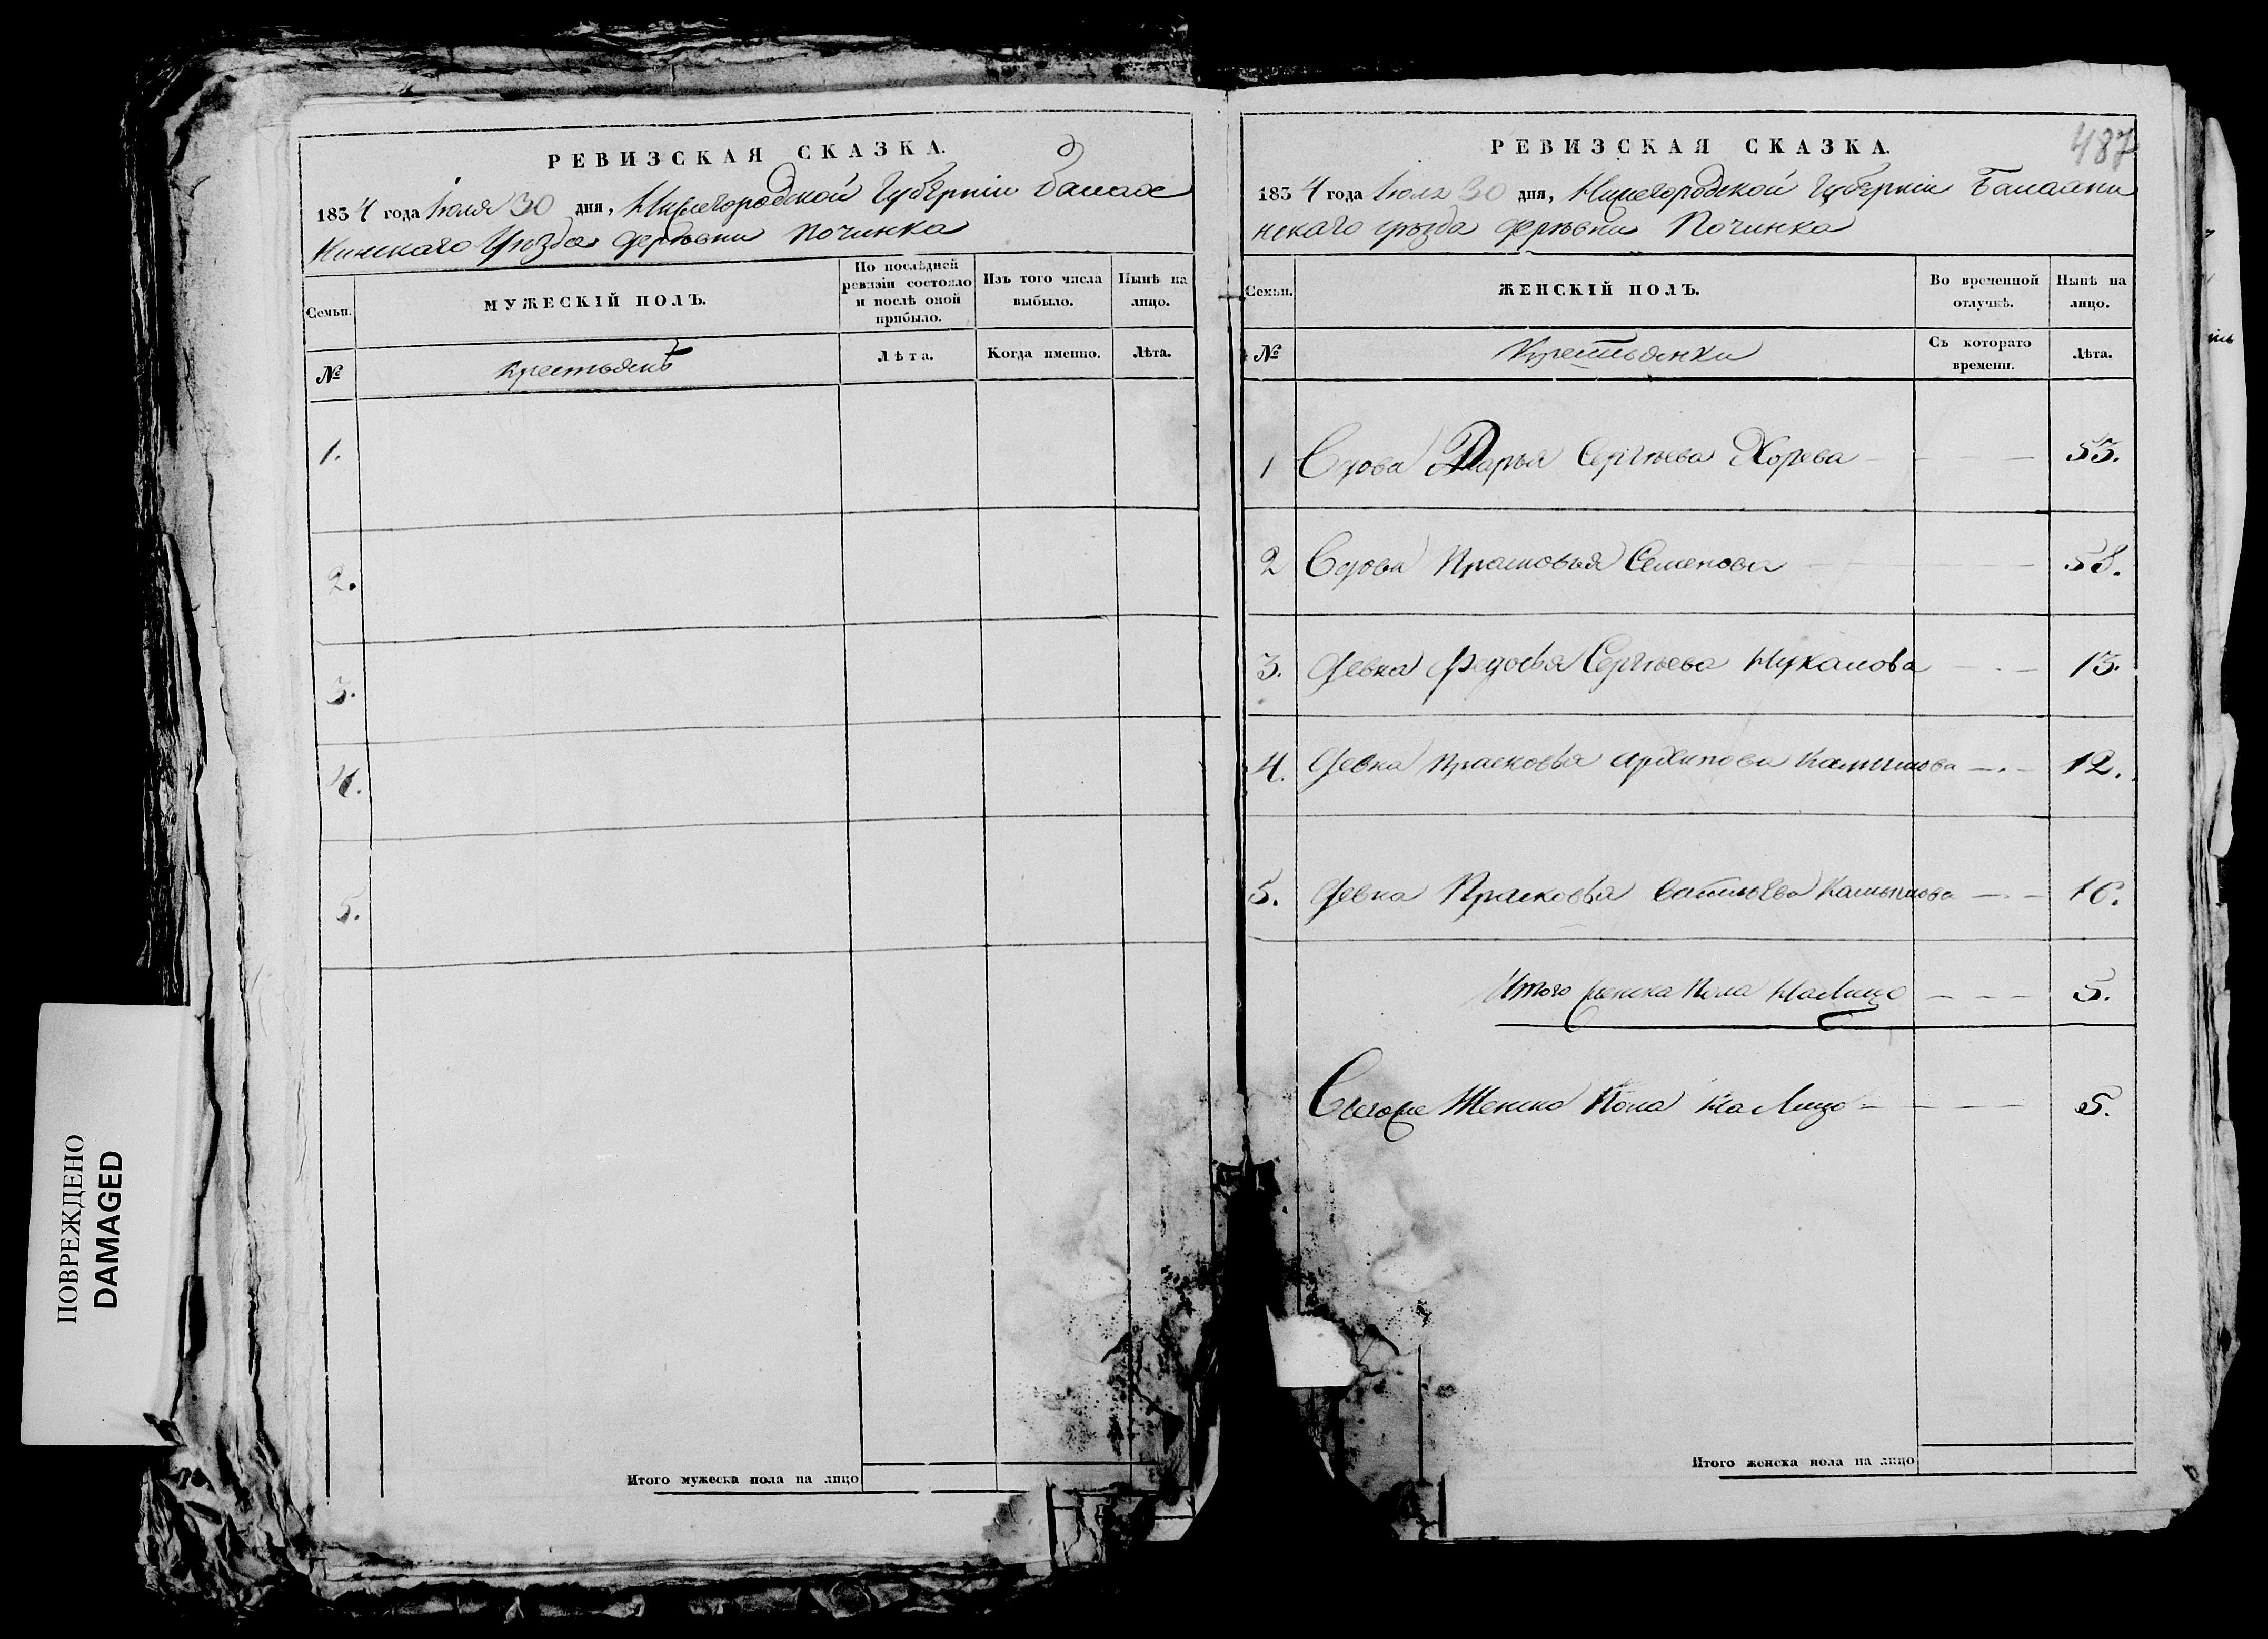 РЕВИЗСКАЯ СКАЗКА.
1834 года Июля 30 дня, Нижегородской Губерніи Балах
нинскаго Уѣзда деревни Починка
Семьи.
МУЖЕСКІЙ ПОЛЪ.
По послѣдней ревизіи состояло и послѣ оной прибыло.
Изъ того числа выбыло.
Нынѣ на лицо.
№
Крестьянъ
Лѣта.
Когда именно.
Лѣта.
1.
2.
3.
4.
5.
Итого мужеска пола на лицо
487
РЕВИЗСКАЯ СКАЗКА.
1834 года Июля 30 дня, Нижегородской Губерніи Балахни
нскаго уѣзда деревни Починка
Семьи.
ЖЕНСКІЙ ПОЛЪ.
Во временной отлучкѣ.
Нынѣ на лицо.
№
Крестьянки
Съ котораго времени.
Лѣта.
1 Вдова Дарья Сергѣева Хорева 53.
2 Вдова Прасковья Семенова 58.
3. Девка Федосья Сергѣева 13.
4. Девка Прасковья Архипова 12.
5. Девка Прасковья 16.
Итого женска пола на Лицо 5.
Всегоже Женска Пола на Лицо 5.
Итого женска пола на лицо
ПОВРЕЖДЕНО
DAMAGED